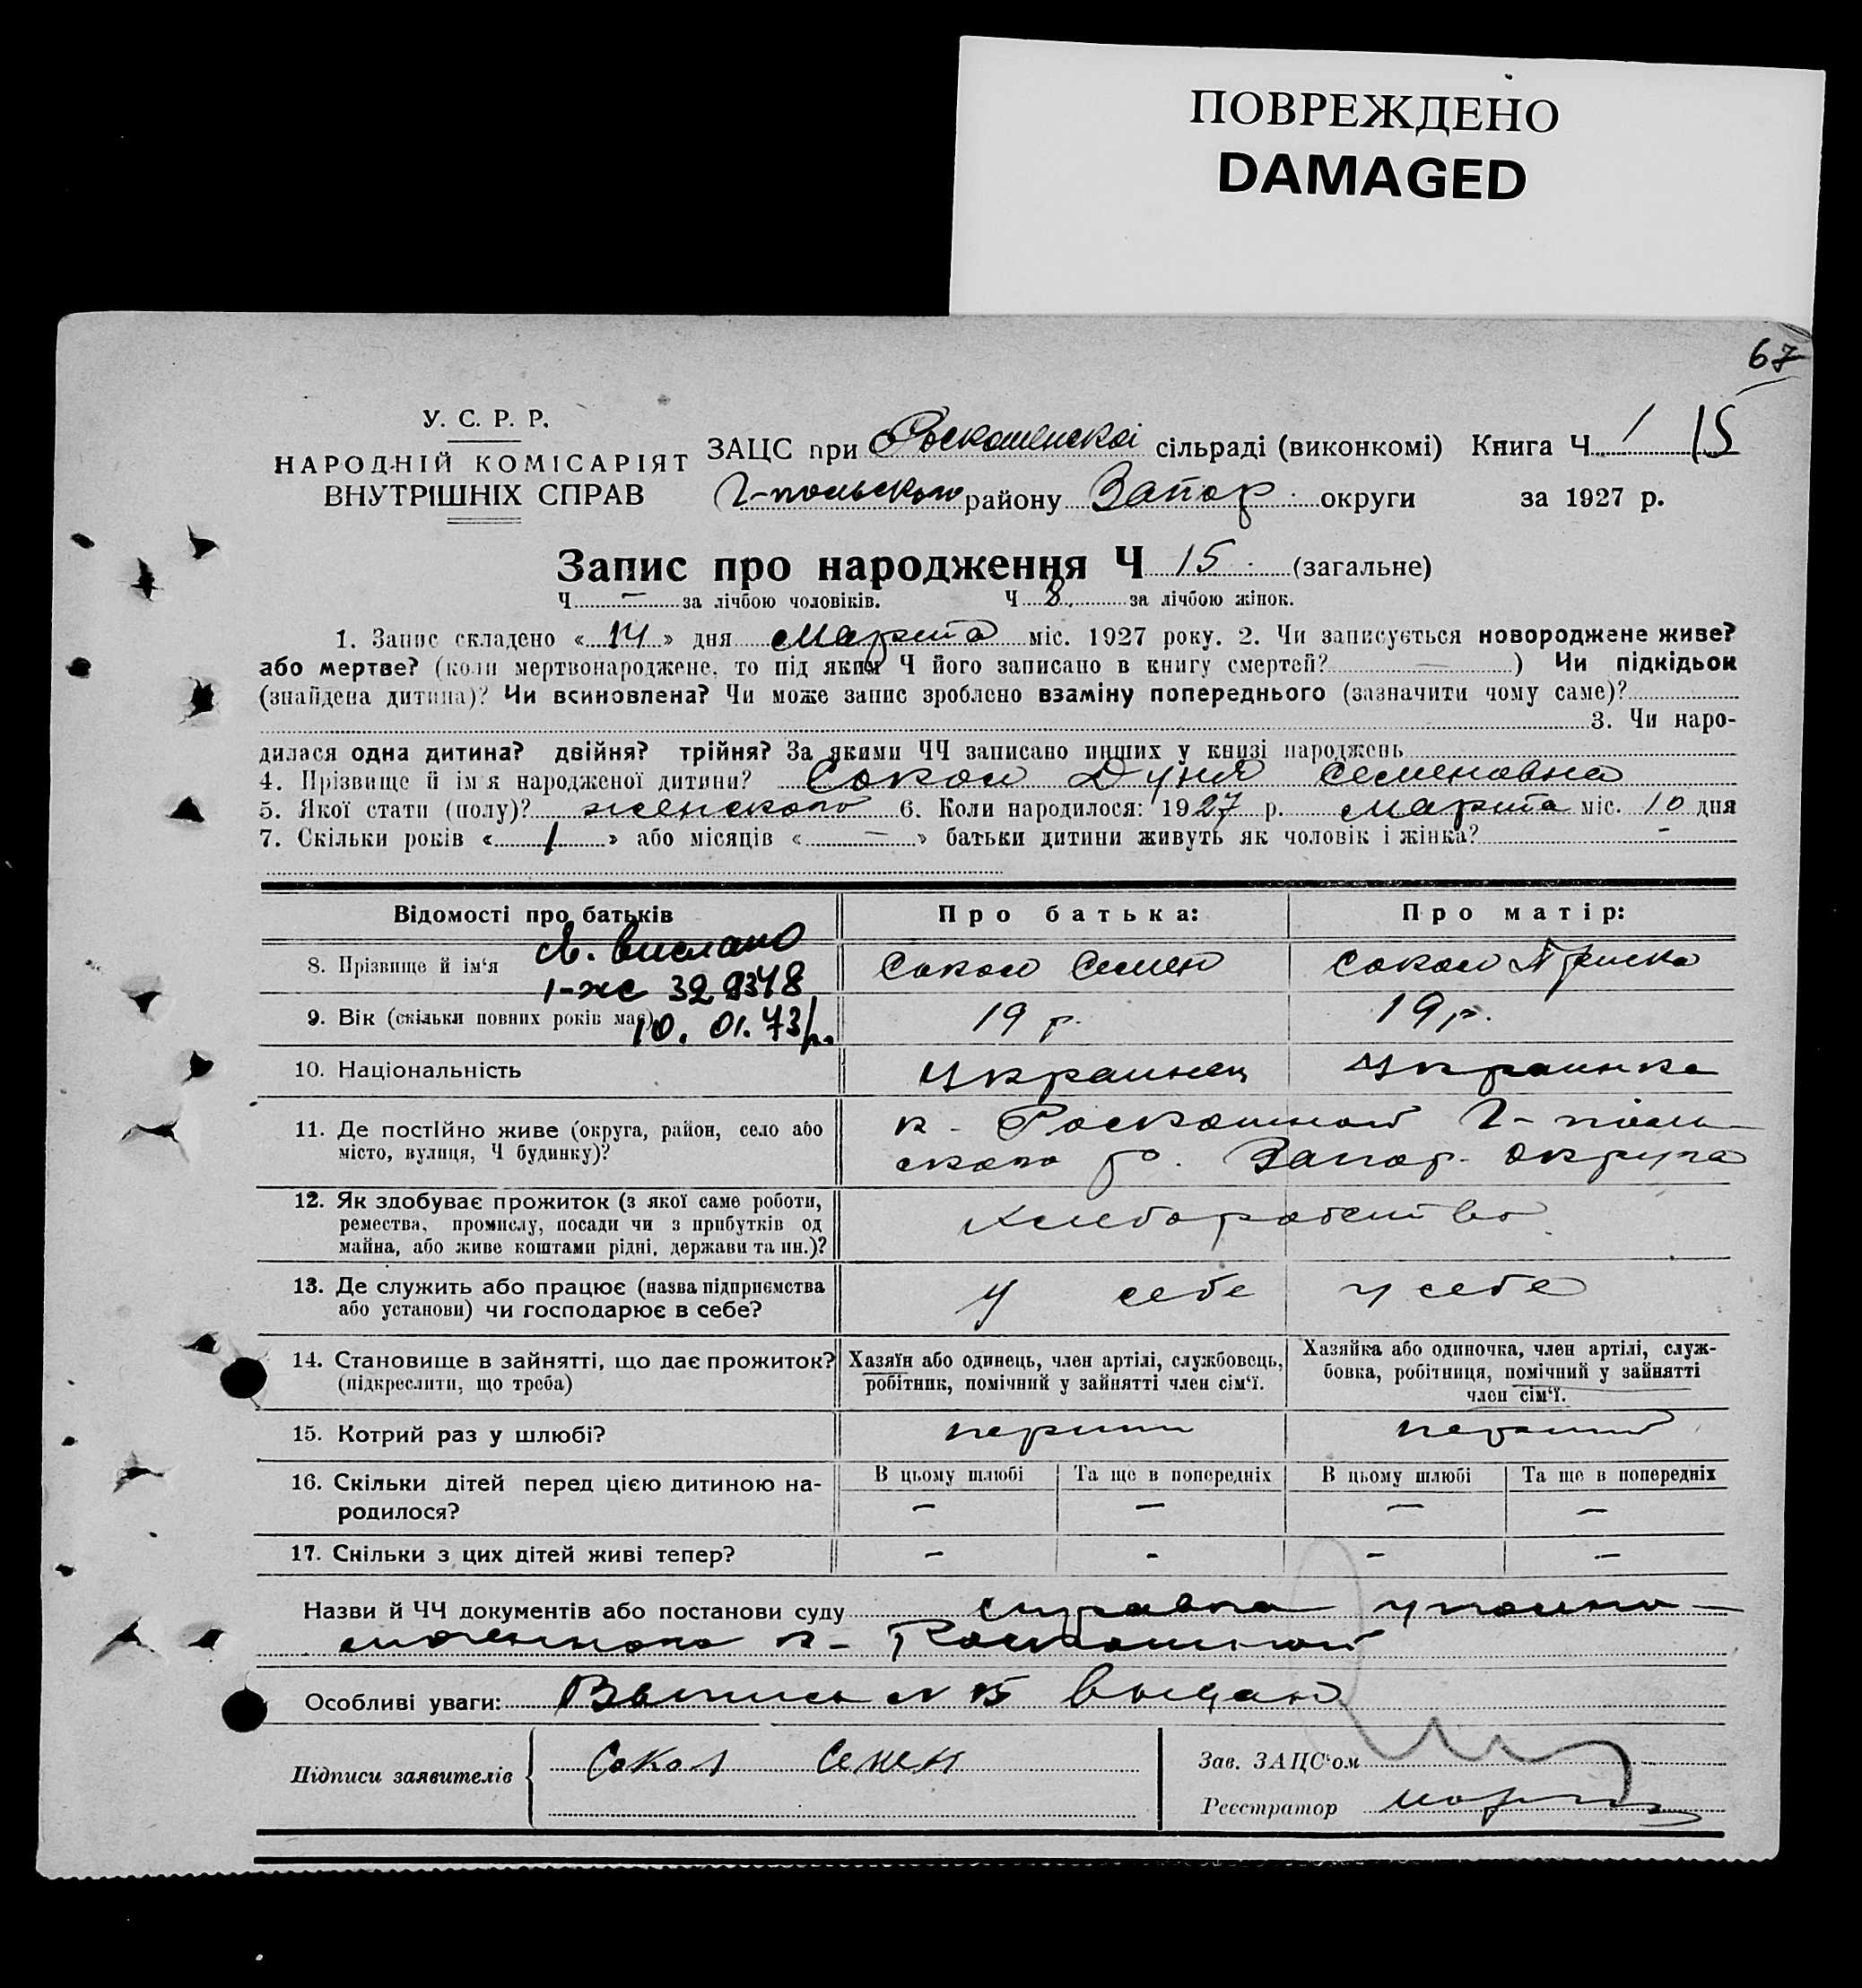 ПОВРЕЖДЕНО
DAMAGED
67
У. С. Р. Р.
НАРОДНІЙ КОМІСАРІЯТ
ВНУТРІШНІХ СПРАВ
ЗАЦС при Роскошенской сільраді (виконкомі) Книга Ч. 1 15
Г-польского району Запор. округи за 1927 р.
Запис про народження Ч 15 (загальне)
Ч — за лічбою чоловіків. Ч 8. за лічбою жінок.
1. Запис складено « 14 » дня Марта міс. 1927 року. 2. Чи записується новороджене живе?
або мертве? (коли мертвонароджене, то під яким Ч його записано в книгу смертей? — ) Чи підкідьок
(знайдена дитина)? Чи всиновлена? Чи може запис зроблено взаміну попереднього (зазначити чому саме)?
3. Чи наро-
дилася одна дитина? двійня? трійня? За якими ЧЧ записано инших у книзі народжень
4. Прізвище й ім'я народженої дитини? Сокол Дуня Семеновна
5. Якої стати (полу)? женского 6. Коли народилося: 1927 р. марта міс. 10 дня
7. Скільки років « 1 » або місяців « — » батьки дитини живуть як чоловік і жінка? -
Відомості про батьків Про батька: Про матір:
св. вислано
8. Прізвище й ім'я Сокол Семен Сокол Приска
1-жс 329348
9. Вік (скільки повних років має) 19 р. 19 р.
10. 01. 73 р.
10. Національність Украинец Украинка
11. Де постійно живе (округа, район, село або к. Роскошной Г-поль-
місто, вулиця, Ч будинку)? ского р. Запор. округа
12. Як здобуває прожиток (з якої саме роботи,
ремества, промислу, посади чи з прибутків од хлеборобство
майна, або живе коштами рідні, держави та ин.)?
13. Де служить або працює (назва підприємства у себе у себе
або установи) чи господарює в себе?
14. Становище в зайнятті, що дає прожиток? Хазяїн або одинець, член артілі, службовець, Хазяйка або одиночка, член артілі, служ-
(підкреслити, що треба) робітник, помічний у зайнятті член сім'ї. бовка, робітниця, помічний у зайнятті
член сім'ї.
15. Котрий раз у шлюбі? перший первый
16. Скільки дітей перед цією дитиною на- В цьому шлюбі Та ще в попередніх В цьому шлюбі Та ще в попередніх
родилося? — — — —
17. Скільки з цих дітей живі тепер? — - — —
Назви й ЧЧ документів або постанови суду справка уполно-
моченного к- Роскошной
Особливі уваги: Выпись N 15 выдано
Підписи заявителів Сокол Семен Зав. ЗАЦС'ом
Реєстратор